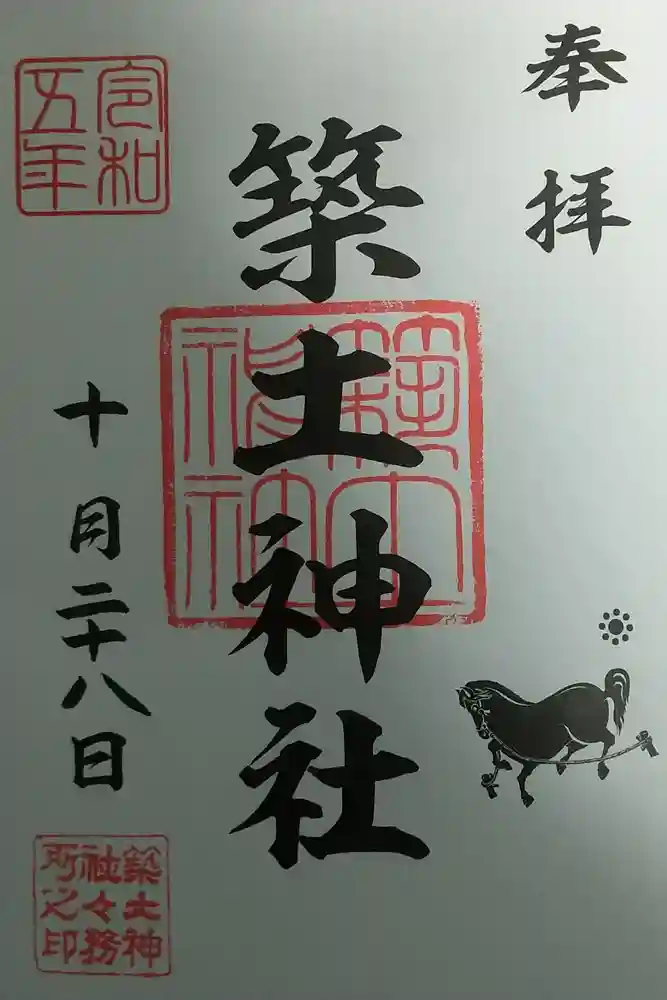 奉拝
築土神社
築土神社
令和五年
十月二十八日
築土神
社々務
所之印